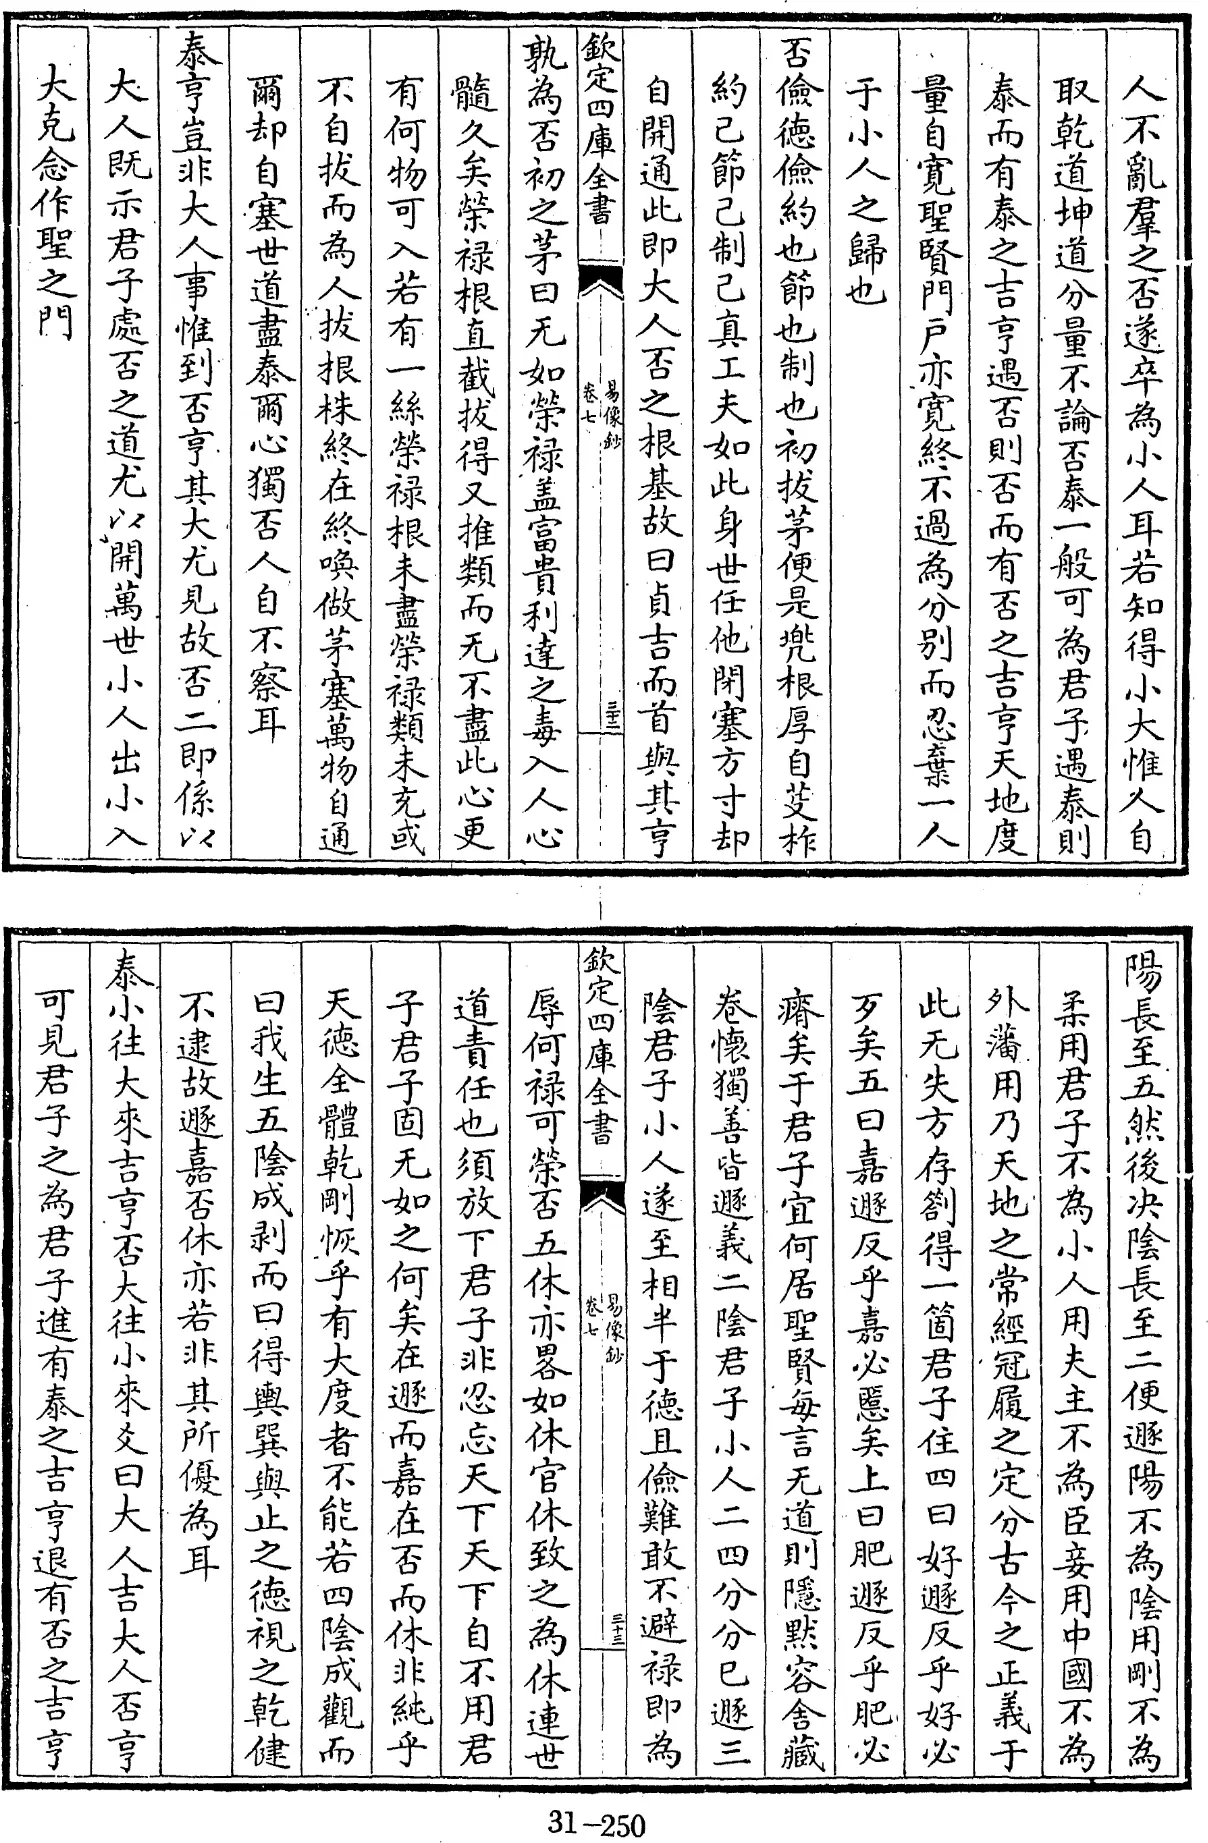 人不亂羣之否遂卒為小人耳若知得小大惟人自
取乾道坤道分量不論否泰一般可為君子遇泰則
泰而有泰之吉亨遇否則否而有否之吉亨天地度
量自寛聖賢門户亦寛終不過為分别而忍棄一人
于小人之歸也
否儉徳儉約也節也制也初拔茅便是兠根厚自芟柞
約己節己制己真工夫如此身世任他閉塞方寸却
自開通此即大人否之根基故曰貞吉而首與其亨
欽定四庫全書
易像鈔
卷七
三十二
孰為否初之茅曰无如榮禄盖富貴利達之毒入人心
髓久矣榮禄根直截拔得又推類而无不盡此心更
有何物可入若有一絲榮禄根未盡榮禄類未充或
不自拔而為人拔根株終在終喚做茅塞萬物自通
爾却自塞世道盡泰爾心獨否人自不察耳
泰亨豈非大人事惟到否亨其大尤見故否二即係以
大人既示君子處否之道尤以開萬世小人出小入
大克念作聖之門
陽長至五然後决陰長至二便遯陽不為陰用剛不為
柔用君子不為小人用夫主不為臣妾用中國不為
外藩用乃天地之常經冠履之定分古今之正義于
此无失方存劄得一箇君子住四曰好遯反乎好必
歹矣五曰嘉遯反乎嘉必慝矣上曰肥遯反乎肥必
瘠矣于君子宜何居聖賢每言无道則隱默容舍藏
卷懷獨善皆遯義二陰君子小人二四分分已遯三
陰君子小人遂至相半于徳且儉難敢不避禄即為
欽定四庫全書
易像鈔
卷七
三十三
辱何禄可榮否五休亦畧如休官休致之為休連世
道責任也須放下君子非忍忘天下天下自不用君
子君子固无如之何矣在遯而嘉在否而休非純乎
天徳全體乾剛恢乎有大度者不能若四陰成觀而
曰我生五陰成剥而曰得輿巽與止之徳視之乾健
不逮故遯嘉否休亦若非其所優為耳
泰小往大來吉亨否大往小來爻曰大人吉大人否亨
可見君子之為君子進有泰之吉亨退有否之吉亨
31-250